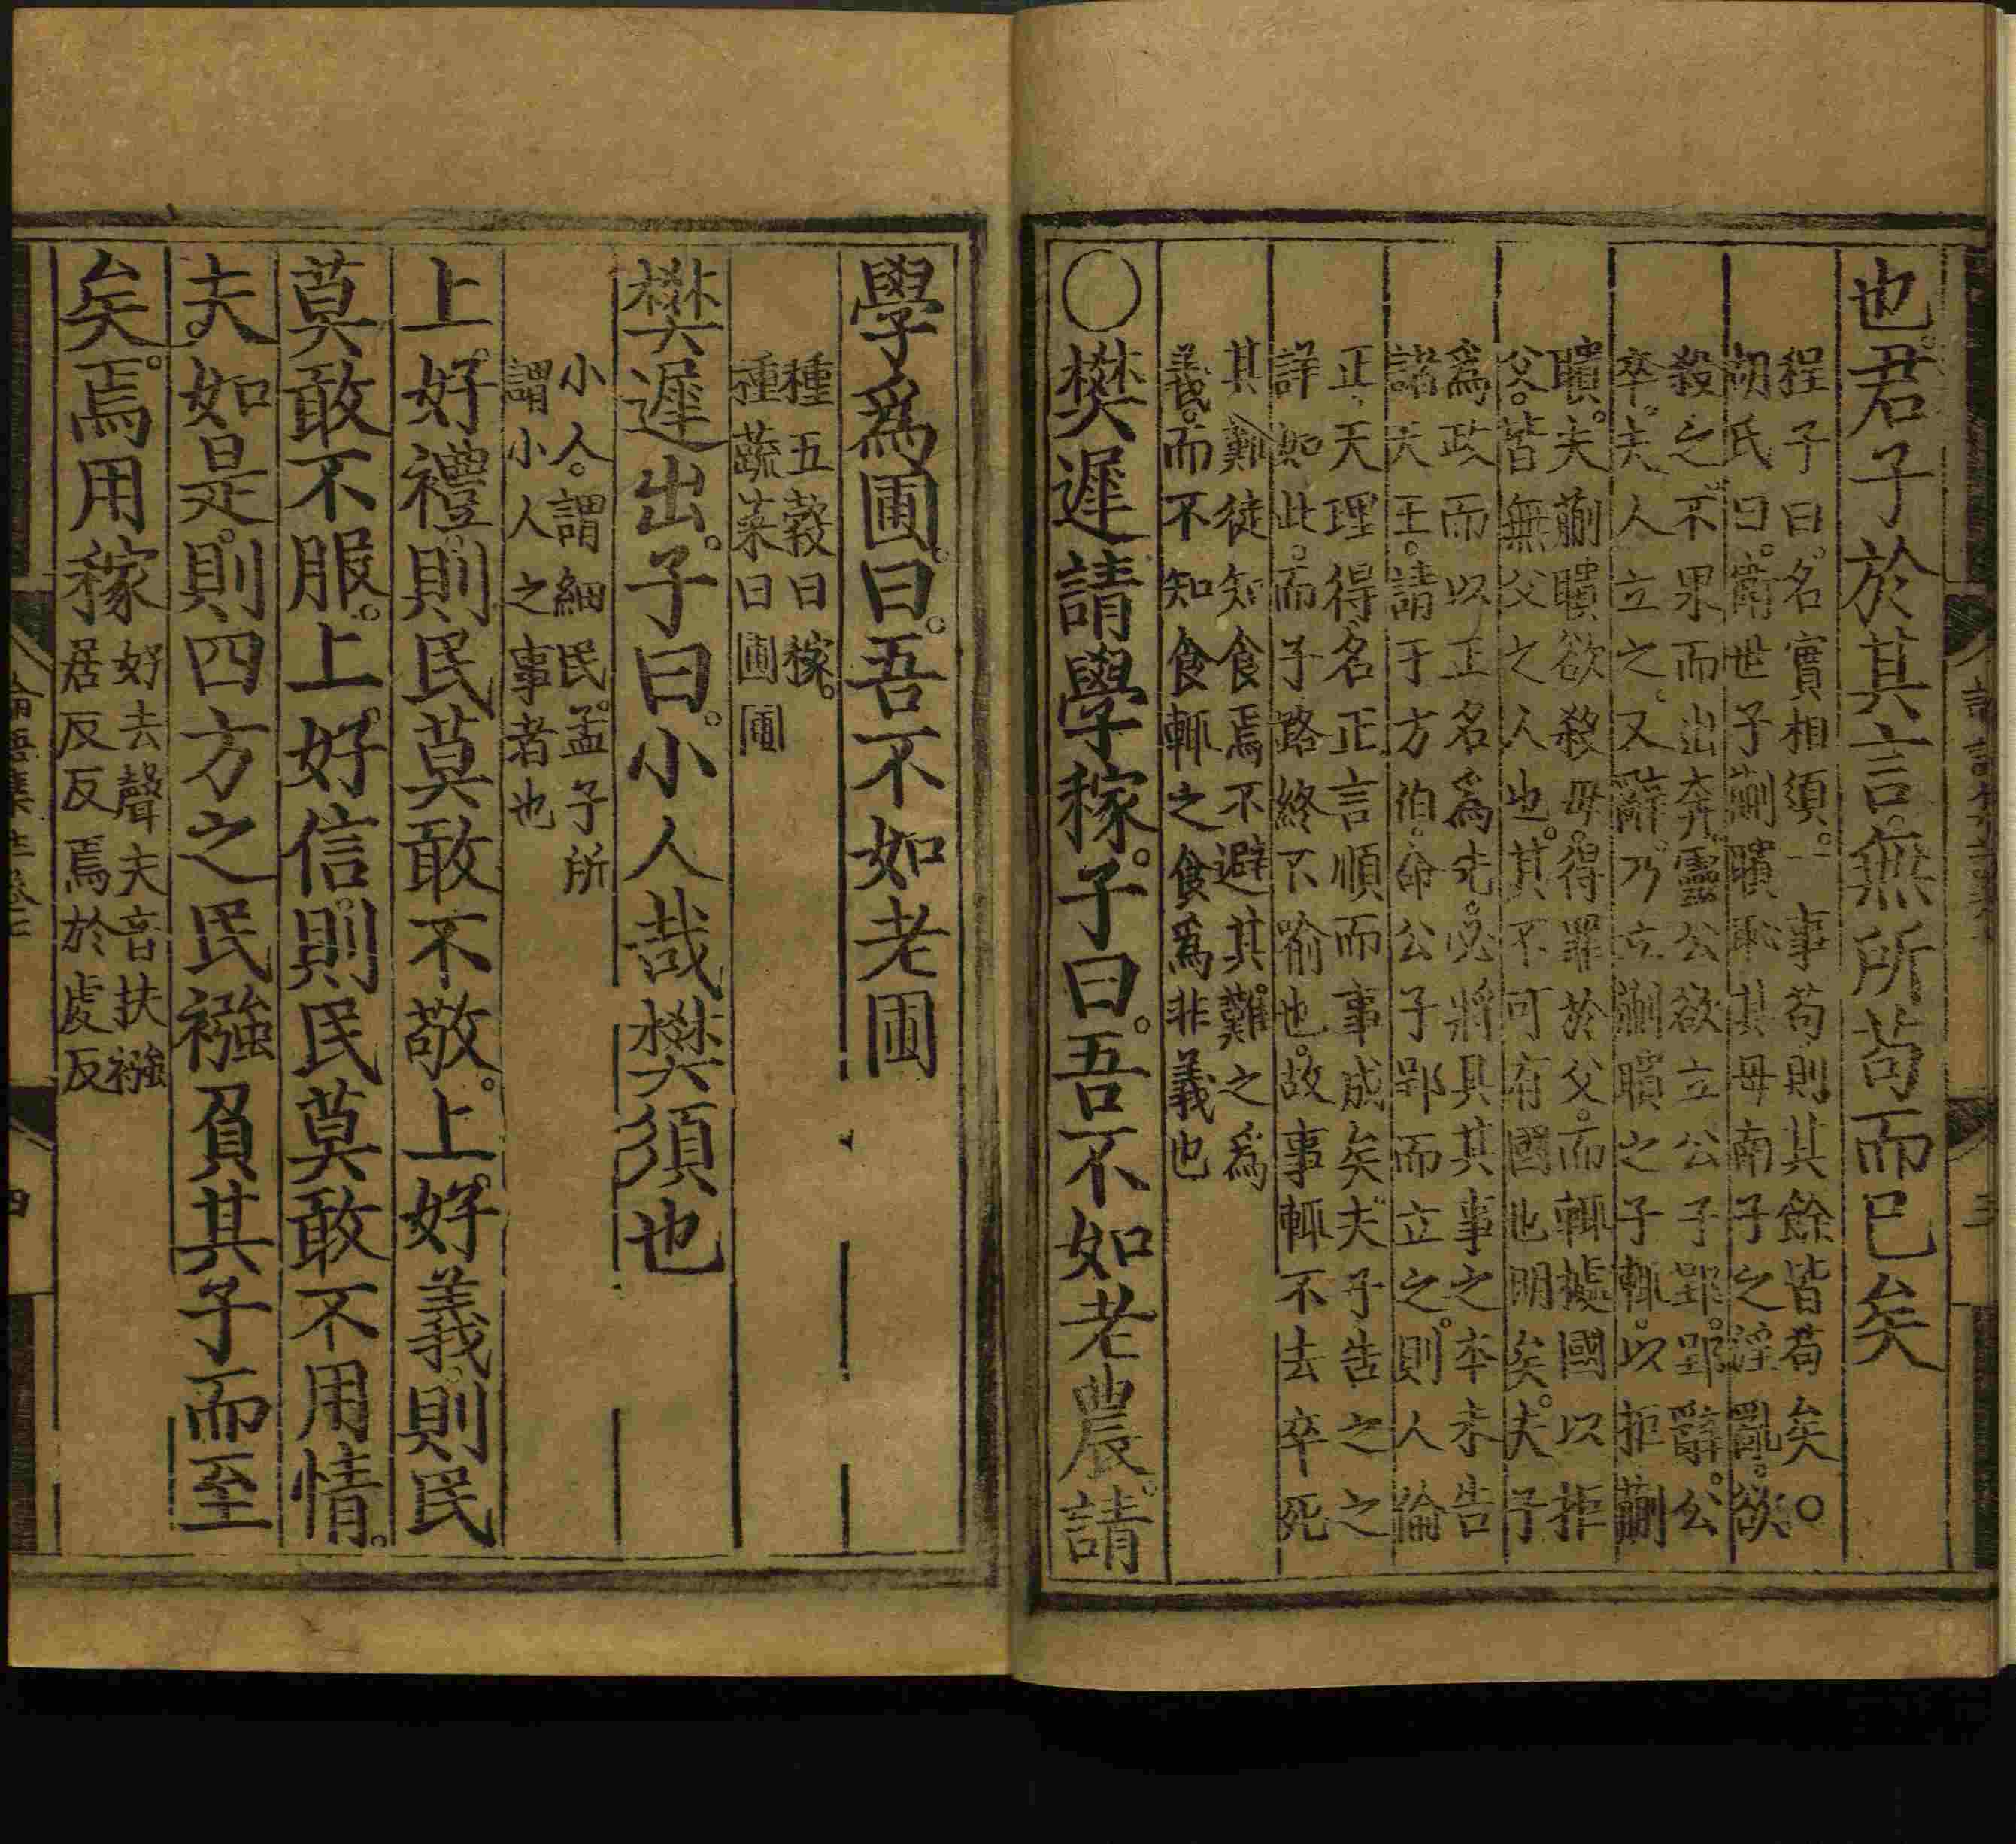 也。君子於其言。無所苟而已矣
程子曰。名實相須。一事苟則其餘皆苟矣。○
胡氏曰。衛世子蒯聵恥其母南子之淫亂。欲
殺之。不果而出奔。靈公欲立公子郢。郢辭。公
卒。夫人立之。又辭。乃立蒯聵之子輒。以拒蒯
聵。夫蒯聵欲殺母。得罪於父。而輒據國以拒
父。皆無父之人也。其不可有國也明矣。夫子
爲政而以正名爲先。必將具其事之本末告
諸天王。請于方伯。命公子郢而立之。則人倫
正。天理得。名正言順而事成矣。夫子告之之
詳如此。而子路終不喻也。故事輒不去卒死
其難。徒知食焉不避其難之爲
義。而不知食輒之食爲非義也
○樊遲請學稼。子曰。吾不如老農。請
學爲圃。曰。吾不如老圃
種五穀曰稼。
種蔬菜曰圃圃
樊遲出。子曰。小人哉樊須也
小人。謂細民。孟子所
謂小人之事者也
上好禮。則民莫敢不敬。上好義。則民
莫敢不服。上好信。則民莫敢不用情。
夫如是。則四方之民襁負其子而至
矣。焉用稼
好去聲夫音扶襁
居反反焉於處反
論語集註卷七
四
三